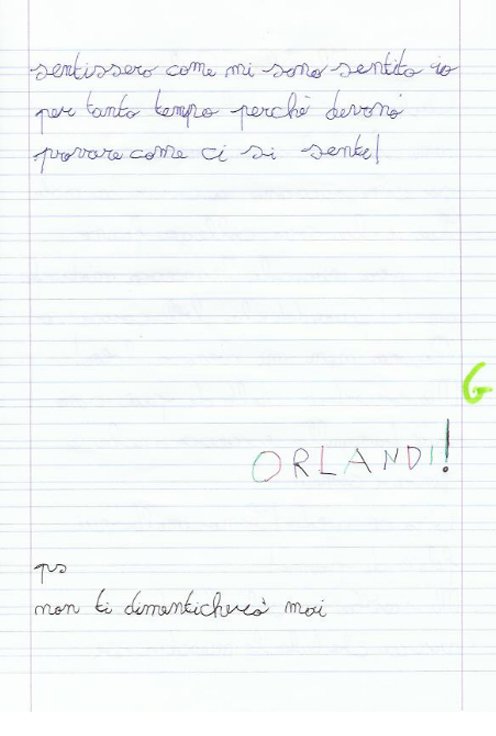 sentissero come mi sono sentito io
per tanto tempo perchè devono
provare come ci si sente!
G
ORLANDI!
ps
non ti dimenticherò mai